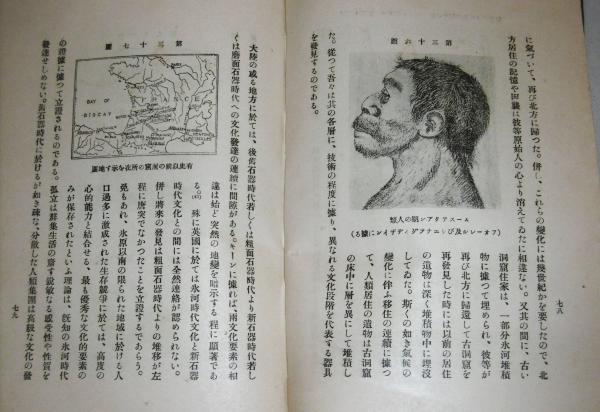 に氣づいて、再び北方に歸つた。併し、これらの變化には幾世紀かを要したので、北
方居住の記憶や因襲は彼等原始人の心より消えてゐたに相違ない。又其の間に、古い
第三十六圖
ムースアタアシ期の人類
洞窟住家は、一部分氷河堆積
物に據つて埋められ、彼等が
再び北方に歸還して古洞窟を
再發見した時には以前の居住
の遺物は深く堆積物中に埋没
してゐた。斯くの如き氣候の
變化に伴ふ移住の連續に據つ
て、人類居住の遺物は古洞窟
の床中に層を異にして堆積し
た。從つて吾々は其の各層に、技術の程度に據り、異なれる文化段階を代表する器具
を發見するのである。
七八
大陸の或る地方に於ては、後舊石器時代若しくは粗面石器時代より新石器時代若し
くは磨面石器時代への文化發達の連續に間隙がある。キーンに據れば、兩文化要素の相
第三十七圖
BAY OF BISCAY
FRANCE
有史以前の洞窟の所在を示す地圖
違は殆ど突然の地變を暗示する程に顯著であ
る。殊に英國に於ては氷河時代文化と新石器
時代文化との間には全然連絡が認められない。
併し將來の發見は粗面石器時代よりの推移が左
程に唐突でなかつたことを立證するであらう。
兎もあれ、氷原以南の限られた地域に於ける人
口過多に激成された生存競爭に於ては、高度の
心的能力と結合せる、最も優秀な文化的要素の
みが保存されたといふ理論は、既知の氷河時代
の證據に據つて立證されるのである。孤立は群集生活の齎す鋭敏なる感受性や性質を
發達せしめない。舊石器時代に於けるが如き疎な、分散した人類集團は高級な文化の發
七九